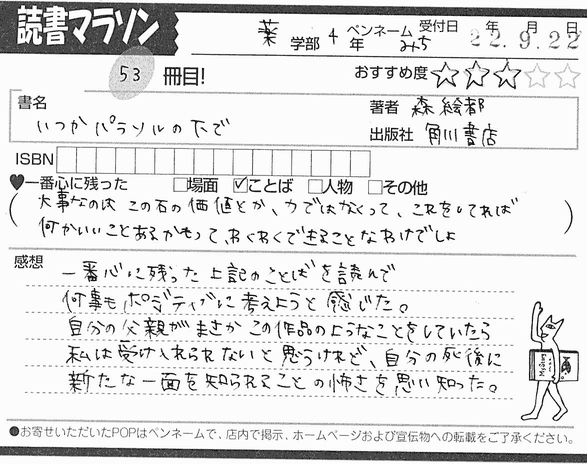 読書マラソン
薬 学部 4 年 ペンネーム みち 受付日 年 月 日 22.9.22
53 冊目! おすすめ度 ★★★☆☆
書名 著者 森絵都
いつかパラソルの下で 出版社 角川書店
ISBN
♥一番心に残った □場面 ☑ことば □人物 □その他
(大事なのは この石の価値とか、力ではなくって、これをしてれば
何かいいことあるかもって、わくわくできることなわけでしょ)
感想
一番心に残った上記のことばを読んで
何事もポジティブに考えようと感じた。
自分の父親がまさかこの作品のようなことをしていたら
私は受け入れられないと思うけれど、自分の死後に
新たな一面を知られることの怖さを思い知った。
●お寄せいただいたPOPはペンネームで、店内で掲示、ホームページおよび宣伝物への転載をご了承ください。